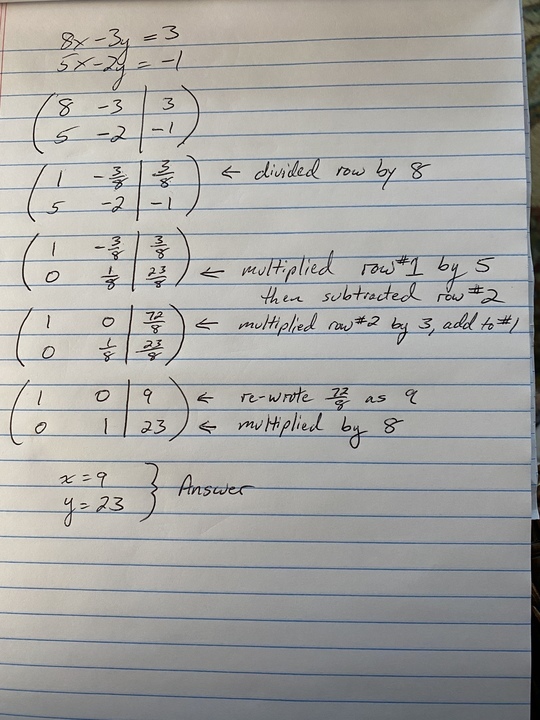 8x-3y = 3
5x-2y = -1
( 8 -3 | 3 )
( 5 -2 | -1 )
( 1 -3/8 | 3/8 ) ← divided row by 8
( 5 -2 | -1 )
( 1 -3/8 | 3/8 )
( 0 1/8 | 23/8 ) ← multiplied row #1 by 5
then subtracted row #2
( 1 0 | 72/8 ) ← multiplied row #2 by 3, add to #1
( 0 1/8 | 23/8 )
( 1 0 | 9 ) ← re-wrote 72/8 as 9
( 0 1 | 23 ) ← multiplied by 8
x = 9
y = 23 } Answer